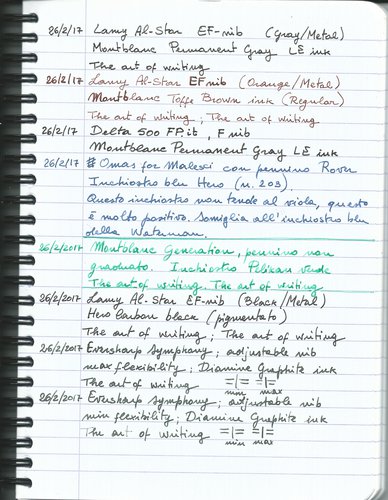 26/2/17 Lamy Al-Star EF-nib (Gray/Metal)
Montblanc Permanent Gray LE ink
The art of writing
26/2/17 Lamy Al-Star EF nib (Orange/Metal)
Montblanc Toffe Brown ink (Regular)
The art of writing; The art of writing
26/2/17 Delta 500 FP.it, F nib
Montblanc Permanent Gray LE ink
26/2/17 # Omas for Malesci con pennino Rover
Inchiostro blu Hero (n. 203).
Questo inchiostro non tende al viola, questo
è molto positivo. Somiglia all'inchiostro blu
della Waterman.
26/2/2017 Montblanc Generation, pennino non
graduato. Inchiostro Pelikan verde
The art of writing. The art of writing
26/2/2017 Lamy Al-Star EF-nib (Black/Metal)
Hero Carbon black (pigmentato)
The art of writing; The art of writing
26/2/2017 Eversharp Symphony; adjustable nib
max flexibility; Diamine Graphite ink
The art of writing =|= =|=
min max
26/2/2017 Eversharp Symphony; adjustable nib
min flexibility; Diamine Graphite ink
The art of writing =|= =|=
min max